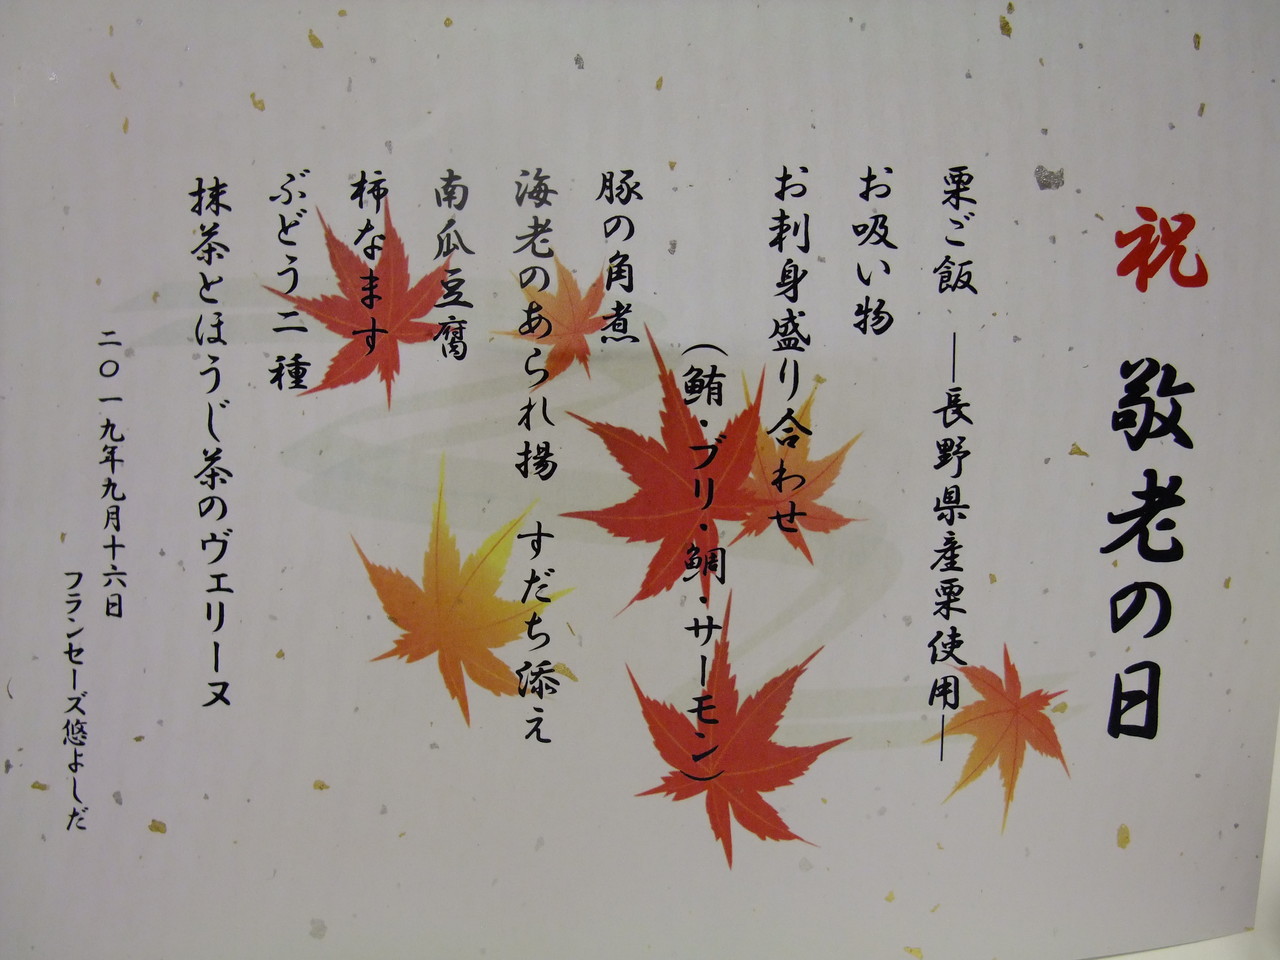 祝 敬老の日
栗ご飯 ―長野県産栗使用―
お吸い物
お刺身盛り合わせ
（鮪・ブリ・鯛・サーモン）
豚の角煮
海老のあられ揚 すだち添え
南瓜豆腐
柿なます
ぶどう二種
抹茶とほうじ茶のヴェリーヌ
二〇一九年九月十六日
フランセーズ悠よしだ